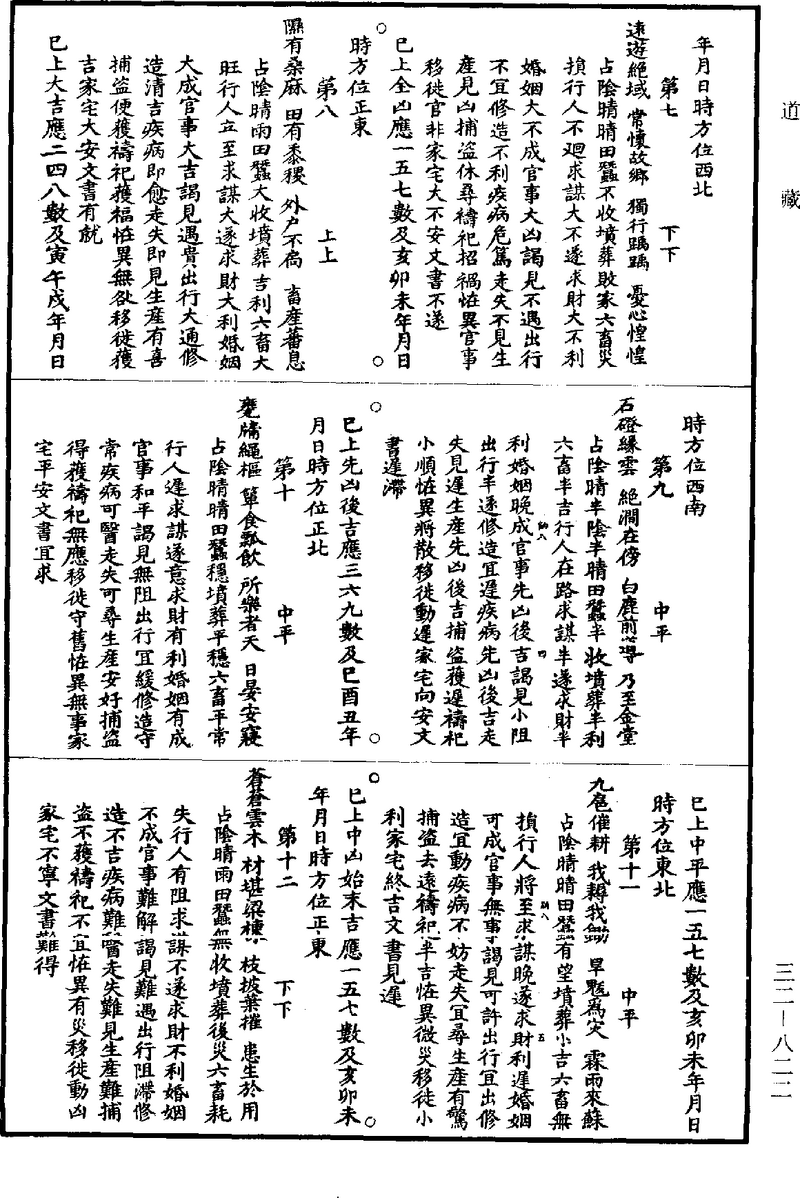 道藏
年月日時方位西北
第七　下下
遠遊絕域　常懷故鄉　獨行踽踽　憂心惶惶
占陰晴晴田蠶不收墳葬敗家六畜災
損行人不廻求謀大不遂求財大不利
婚姻大不成官事大凶謁見不遇出行
不宜修造不利疾病危篤走失不見生
產見凶捕盜休尋禱祀招禍怪異官事
移徙官非家宅大不安文書不遂
巳上全凶應一五七數及亥卯未年月日
時方位正東
第八　上上
隰有桑麻　田有黍稷　外户不扃　畜產蕃息
占陰晴雨田蠶大收墳葬吉利六畜大
旺行人立至求謀大遂求財大利婚姻
大成官事大吉謁見遇貴出行大通修
造清吉疾病即愈走失即見生產有喜
捕盜便獲禱祀獲福怪異無咎移徙獲
吉家宅大安文書有就
巳上大吉應二四八數及寅午戌年月日
時方位西南
第九　中平
石磴緣雲　絕澗在傍　白鹿前導　乃至金堂
占陰晴半陰半晴田蠶半收墳葬半利
六畜半吉行人在路求謀半遂求財半
利婚姻晚成官事先凶後吉謁見小阻
出行半遂修造宜遲疾病先凶後吉走
失見遲生產先凶後吉捕盜獲遲禱祀
小順怪異將散移徙動遲家宅向安文
書遲滯
巳上先凶後吉應三六九數及巳酉丑年
月日時方位正北
第十　中平
甕牖繩樞　簞食瓢飲　所樂者天　日晏安寢
占陰晴晴田蠶穩墳葬平穩六畜平常
行人遲求謀遂意求財有利婚姻有成
官事和平謁見無阻出行宜緩修造守
常疾病可醫走失可尋生產安好捕盜
得獲禱祀無應移徙守舊怪異無事家
宅平安文書宜求
巳上中平應一五七數及亥卯未年月日
時方位東北
第十一　中平
九扈催耕　我耨我鋤　旱魃為災　霖雨來蘇
占陰晴晴田蠶有望墳葬小吉六畜無
損行人將至求謀晚遂求財利遲婚姻
可成官事無事謁見可許出行宜出修
造宜動疾病不妨走失宜尋生產有驚
捕盜去遠禱祀半吉怪異微災移徙小
利家宅終吉文書見遲
巳上中凶始末吉應一五七數及亥卯未
年月日時方位正東
第十二　下下
蒼蒼雲木　材堪梁棟　枝披葉摧　患生於用
占陰晴雨田蠶無收墳葬後災六畜耗
失行人有阻求謀不遂求財不利婚姻
不成官事難解謁見難遇出行阻滯修
造不吉疾病難醫走失難見生產難捕
盜不獲禱祀不宜怪異有災移徙動凶
家宅不寧文書難得
三二—八二二